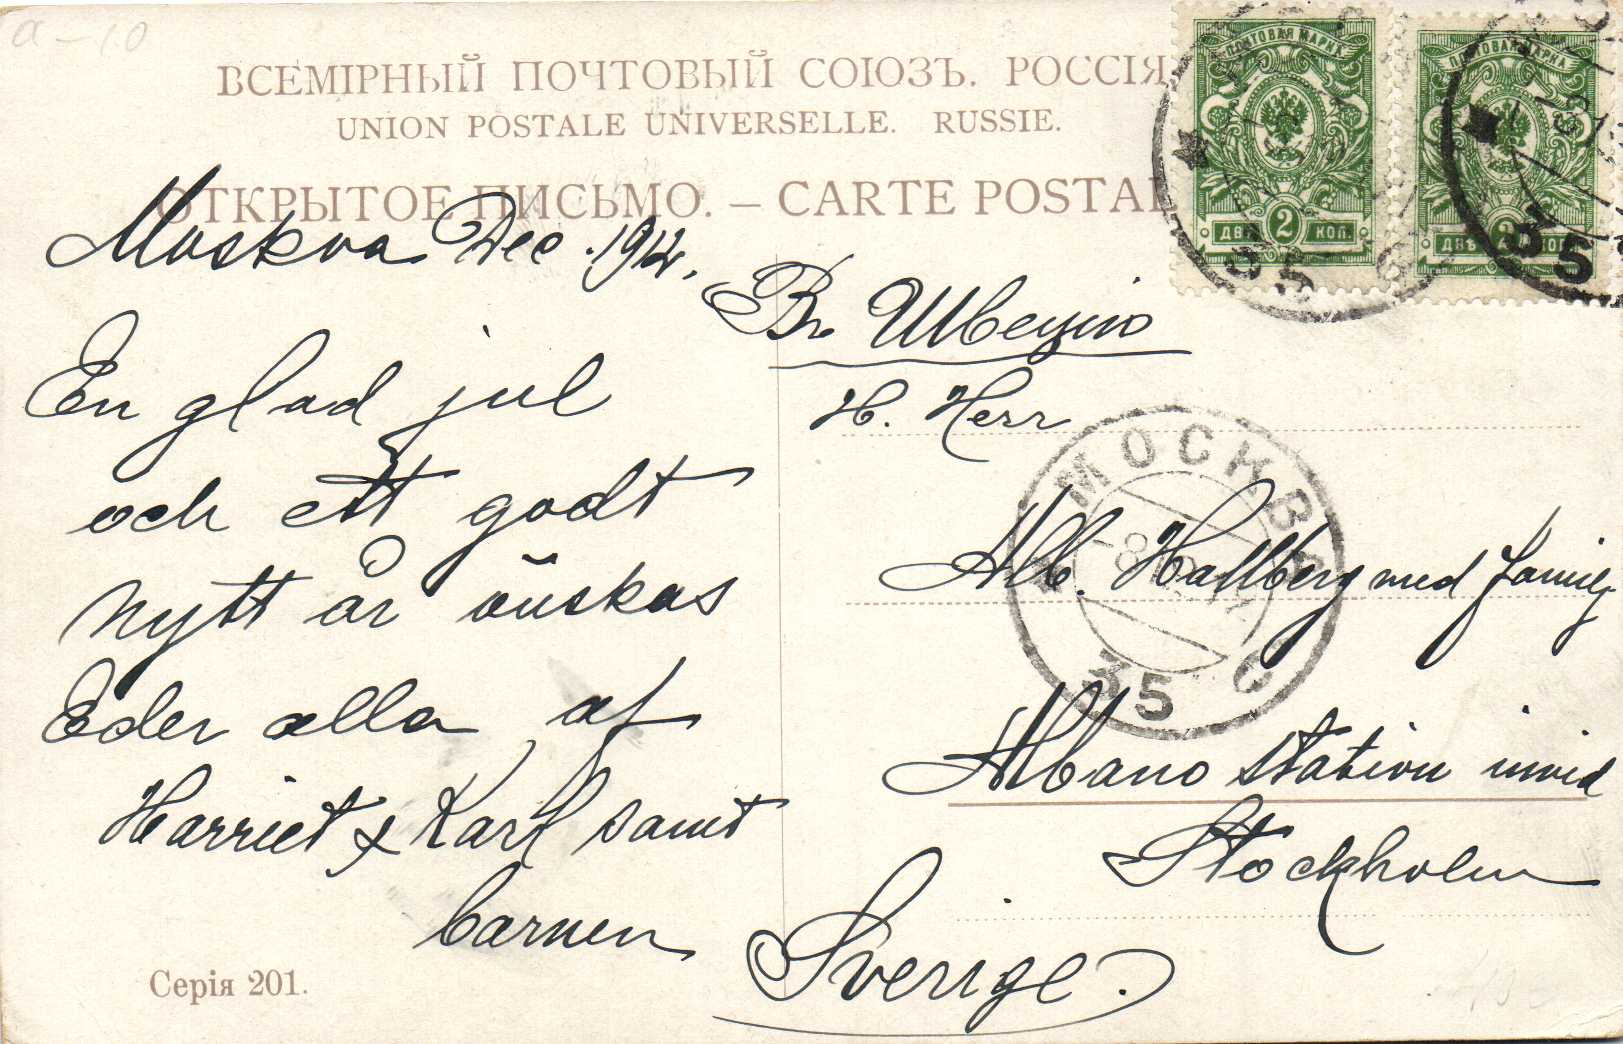 a-10
ВСЕМІРНЫЙ ПОЧТОВЫЙ СОЮЗЪ. РОССІЯ
UNION POSTALE UNIVERSELLE. RUSSIE.
ОТКРЫТОЕ ПИСЬМО. — CARTE POSTAL
ПОЧТОВАЯ МАРКА
2
ДВѢ КОП.
35
ПОЧТОВАЯ МАРКА
2
ДВѢ КОП.
35
Moskva Dec. 1912.
En glad jul
och ett godt
nytt år önskas
Eder alla af
Harriet & Karl samt
barnen
Въ Швецію
H. Herr
Alb. Hallberg med familj
Albano station invid
Stockholm
Sverige.
МОСКВА
35
Серія 201.